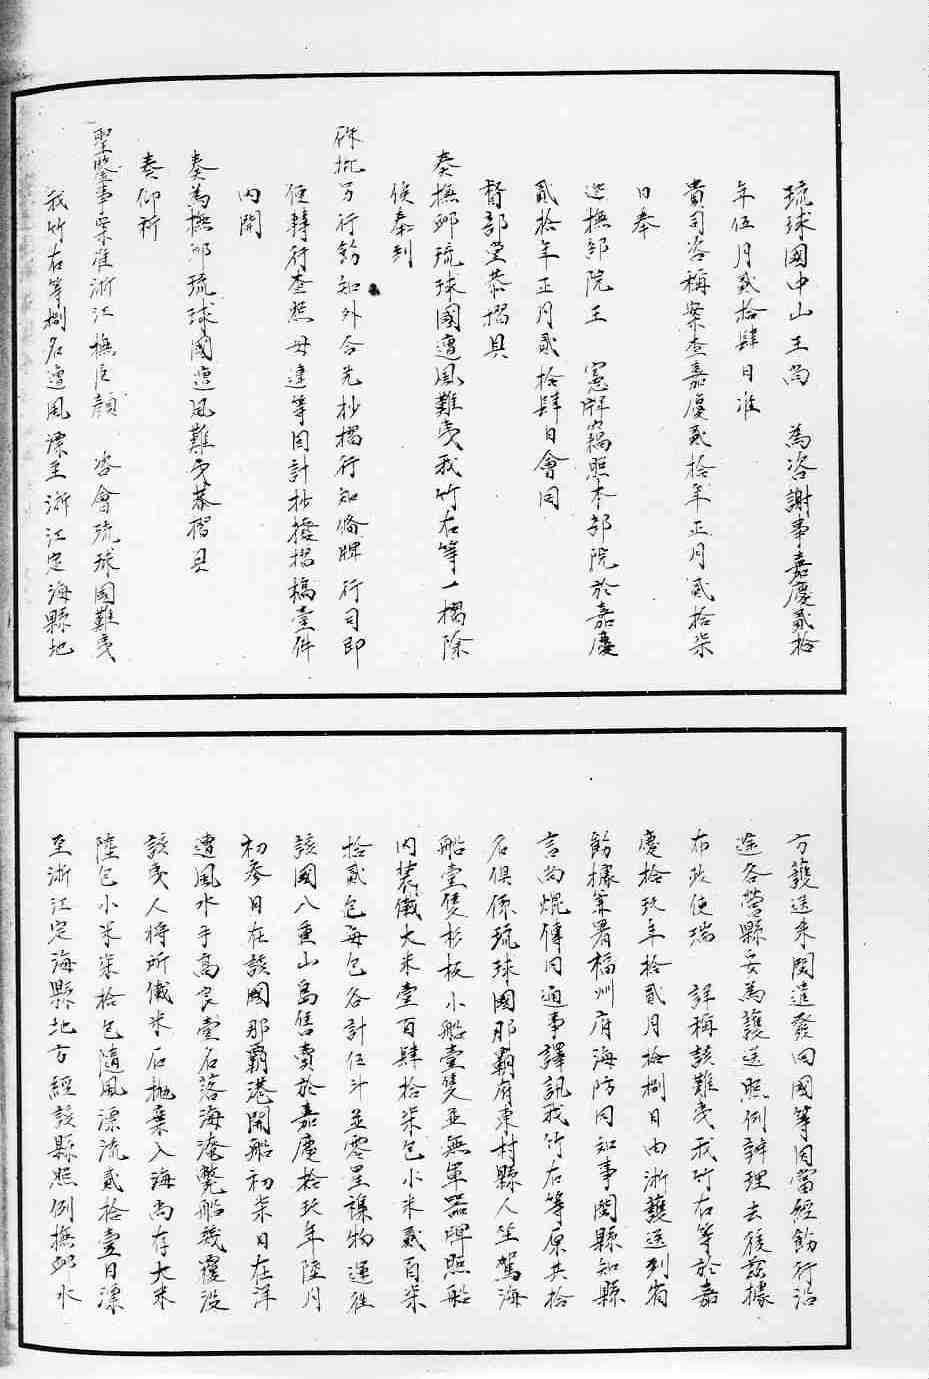 琉球國中山王尚　為咨謝事嘉慶貳拾
年伍月貳拾肆日准
貴司咨稱案查嘉慶貳拾年正月貳拾柒
日奉
巡撫部院王　憲牌竊照本部院於嘉慶
貳拾年正月貳拾肆日會同
督部堂恭摺具
奏撫卹琉球國遭風難夷我竹右等一摺除
俟奉到
硃批另行飭知外合先抄摺行知備牌行司即
便轉行查照毋違等因計抄撥摺稿壹件
內開
奏為撫卹琉球國遭風難夷恭摺具
奏仰祈
聖鑒事案准浙江撫臣顏　咨會琉球國難夷
我竹右等捌名遭風漂至浙江定海縣地
方護送來閩遣發回國等因當經飭行沿
途各營縣妥為護送照例辦理去後茲據
布政使瑞　詳稱該難夷我竹右等於嘉
慶拾玖年拾貳月拾捌日由浙護送到省
飭據兼署福州府海防同知事閩縣知縣
言尚焜傳同通事譯訊我竹右等原共拾
名俱係琉球國那霸府東村縣人坐駕海
船壹隻杉板小船壹隻並無軍器牌照船
內裝儎大米壹百肆拾柒包小米貳百柒
拾貳包每包各計伍斗並零星襍物運往
該國八重山島售賣於嘉慶拾玖年陸月
初叁日在該國那霸港開船初柒日在洋
遭風水手高良壹名落海淹斃船幾覆沒
該夷人將所儎米石拋棄入海尚存大米
陸包小米柒拾包隨風漂流貳拾壹日漂
至浙江定海縣地方經該縣照例撫卹水